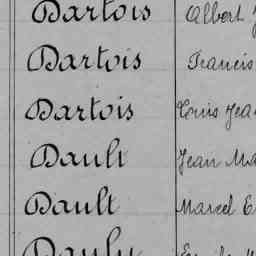 Dartois Albert
Dartois Francis
Dartois Louis Jea
Dault Jean Ma
Dault Marcel E